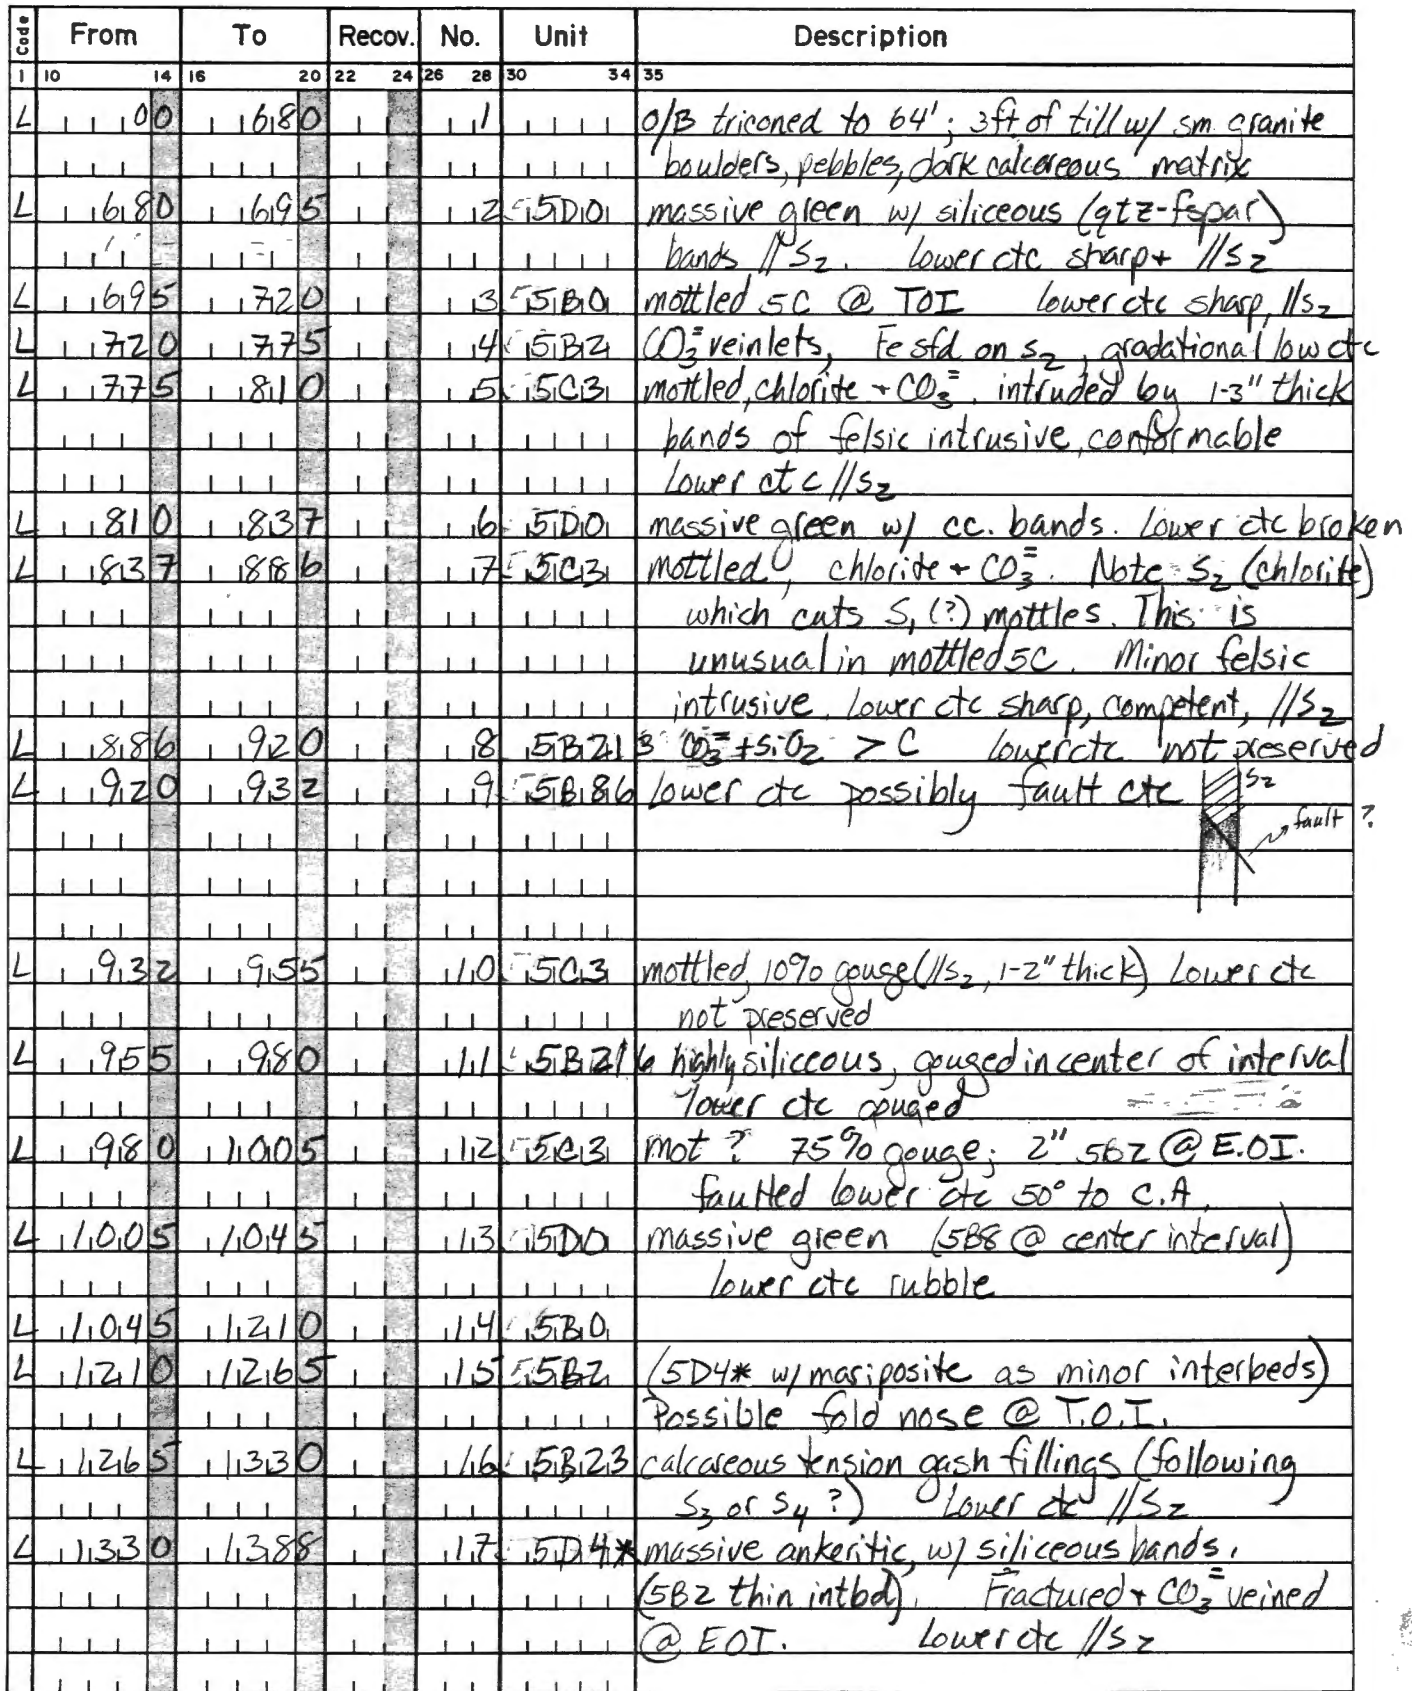 Code From To Recov. No. Unit Description
1 10 14 16 20 22 24 26 28 30 34 35
L 00 680 1 O/B triconed to 64'; 3ft of till w/ sm. granite
boulders, pebbles, dark calcareous matrix
L 680 695 2 5D0 massive green w/ siliceous (qtz-fspar)
bands //S2. Lower ctc sharp + //S2
L 695 720 3 5B0 mottled 5C @ TOI lower ctc sharp, //S2
L 720 775 4 5B2 CO3= veinlets, Fe sfd on S2, gradational low ctc
L 775 810 5 5C3 mottled, chlorite + CO3=, intruded by 1-3" thick
bands of felsic intrusive, conformable
Lower ctc //S2
L 810 837 6 5D0 massive green w/ cc. bands. Lower ctc broken
L 837 886 7 5C3 mottled, chlorite + CO3=. Note S2 (chlorite)
which cuts S1 (?) mottles. This is
unusual in mottled 5C. Minor felsic
intrusive. Lower ctc sharp, competent, //S2
L 886 920 8 5B213 CO3= + SiO2 > C lower ctc not preserved
L 920 932 9 5B86 lower ctc possibly fault ctc S2
fault ?
L 932 955 10 5C3 mottled, 10% gouge (//S2, 1-2" thick) Lower ctc
not preserved
L 955 980 11 5B216 highly siliceous, gouged in center of interval
lower ctc gouged
L 980 1005 12 5C3 mot ? 75% gouge; 2" 5B2 @ E.OI.
faulted lower ctc 50° to C.A.
L 1005 1045 13 5D0 massive green (5B8 @ center interval)
lower ctc rubble
L 1045 1210 14 5B0
L 1210 1265 15 5B2 (5D4* w/ mariposite as minor interbeds)
Possible fold nose @ T.O.I.
L 1265 1330 16 5B23 calcareous tension gash fillings (following
S3 or S4 ?) Lower ctc //S2
L 1330 1388 17 5D4* massive ankeritic, w/ siliceous bands.
(5B2 thin intbd). Fractured + CO3= veined
@ EOI. Lower ctc //S2